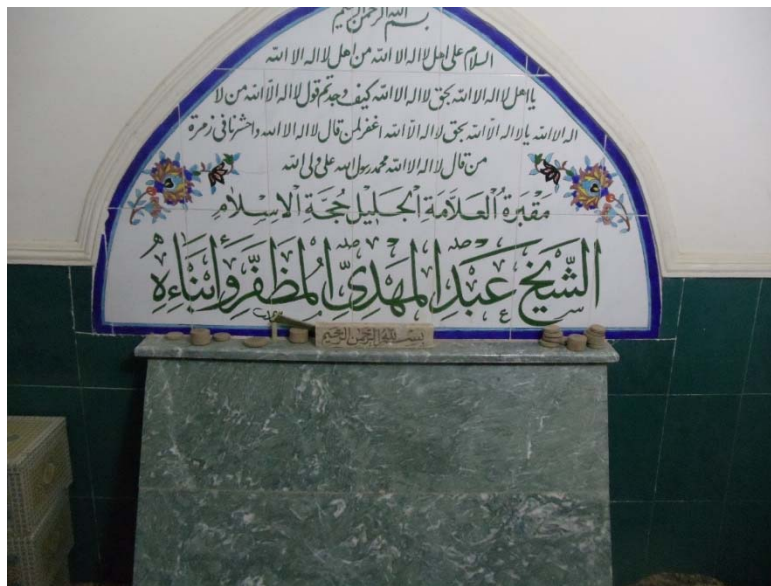 بسم الله الرحمن الرحيم
السلام على اهل لا اله الا الله من اهل لا اله الا الله
يا اهل لا اله الا الله بحق لا اله الا الله كيف وجدتم قول لا اله الا الله من لا
اله الا الله يا لا اله الا الله بحق لا اله الا الله اغفر لمن قال لا اله الا الله واحشرنا في زمرة
من قال لا اله الا الله محمد رسول الله علي ولي الله
مَقبَرةُ العَلاّمَةِ الجَليل حُجَةِ الاِسلام
الشّيخ عَبدِ المَهديّ المُظفّر وَأبنَاءِهُ
بسم الله الرحمن الرحيم